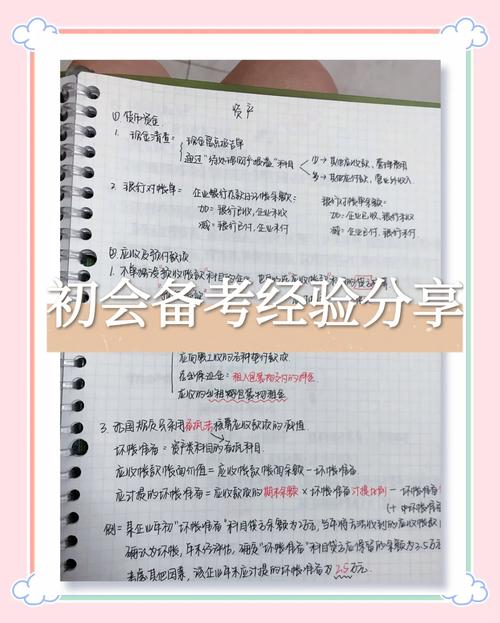 资产
(1) 货币资金
1. 现金清查:
现金盘点报告单
通过“待处理财产损溢”科目
少→其他应收款、管理费用
多→其他应付款、营业外收入
2. 银行对帐单:
企业银行存款日记帐余额:
加:银行已收,企业未收
减:银行已付,企业未付
银行对帐单余额:
加:企业已收,银行未收
减:企业已付,银行未付
应收及预付款项
1. 不单独设
初会备考经验分享
应向职工收取的各种垫付款项
存出保证金:租入包装物支付的押金
应收的出租包装物租金
3. 我国
应收款项的减值
坏帐准备=资产类科目的备抵科目
应收帐款帐面价值=应收帐款帐面余额-坏帐准备
应计提的坏帐准备=应收款项的期末余额×坏帐准备计提比例-坏帐准备
(+中坏帐准备
例:某企业年初“坏帐准备”科目贷方余额为2万元,当年将
收到的应收帐款
确认为坏帐,年末经评估,确定“坏帐准备”科目贷方应保留的余额为3.5万元
考虑其他因素,该企业年末应计提的坏帐准备为2.5万元.